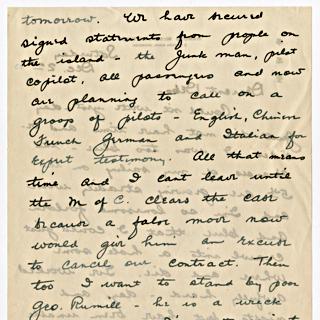 tomorrow. We have secured
signed statements from people on
the island - the Junk man, pilot
copilot, all passengers and now
are planning to call on a
groop of pilots - English, Chinese
French German and Italian for
Expert testimony. All that means
time and I cant leave until
the M of C. clears the case
because a false move now
would give him an excuse
to cancel our contract. Then
too I want to stand by poor
Geo. Rumill - he is a wreck